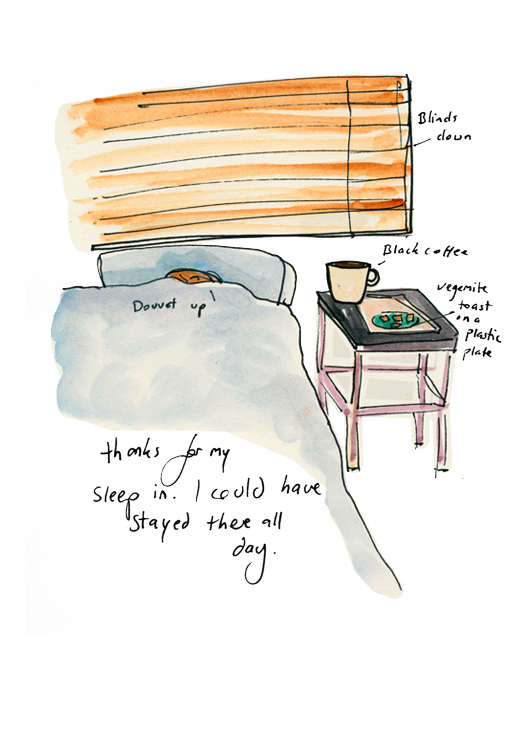 Blinds
down
Black coffee
vegemite
toast
on a
plastic
plate
Douvet up
thanks for my
sleep in. I could have
stayed there all
day.